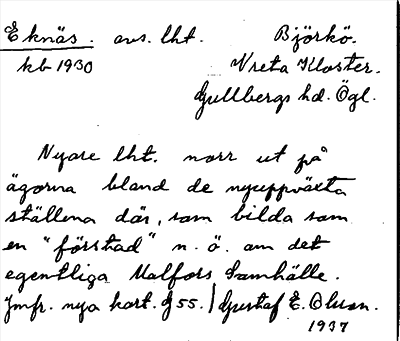 Eknäs. avs. lht. Björkö.
kb 1930 Vreta Kloster.
Gullbergs hd. Ögl.
Nyare lht. norr ut på
ägorna bland de nyuppväxta
ställena där, som bilda som
en "förstad" n. ö. om det
egentliga Malfors Samhälle.
Jmfr. nya kart. J 55. / Gustaf E. Olsson.
1937